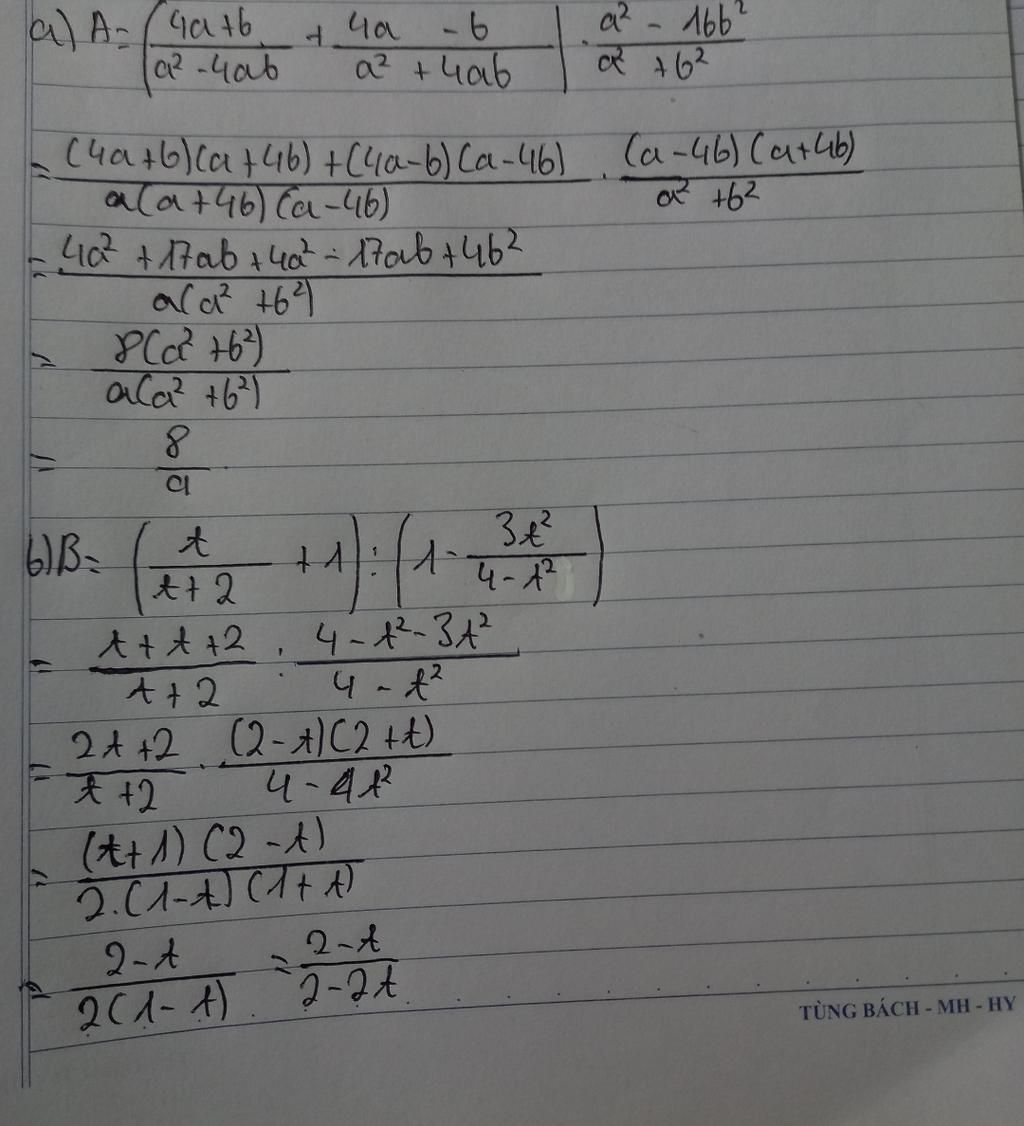 a) A = (4a+b / a² - 4ab + 4a - b / a² + 4ab) . a² - 16b² / a² + b²
= (4a+b)(a+4b) + (4a-b)(a-4b) / a(a+4b)(a-4b) . (a-4b)(a+4b) / a² + b²
= 4a² + 17ab + 4a² - 17ab + 4b² / a(a² + b²)
= 8(a² + b²) / a(a² + b²)
= 8 / a
b) B = (t / t+2 + 1) : (1 - 3t² / 4 - t²)
= t + t + 2 / t + 2 : 4 - t² - 3t² / 4 - t²
= 2t + 2 / t + 2 . (2-t)(2+t) / 4 - 4t²
= (t+1)(2-t) / 2.(1-t)(1+t)
= 2-t / 2(1-t) = 2-t / 2-2t
TÙNG BÁCH - MH - HY